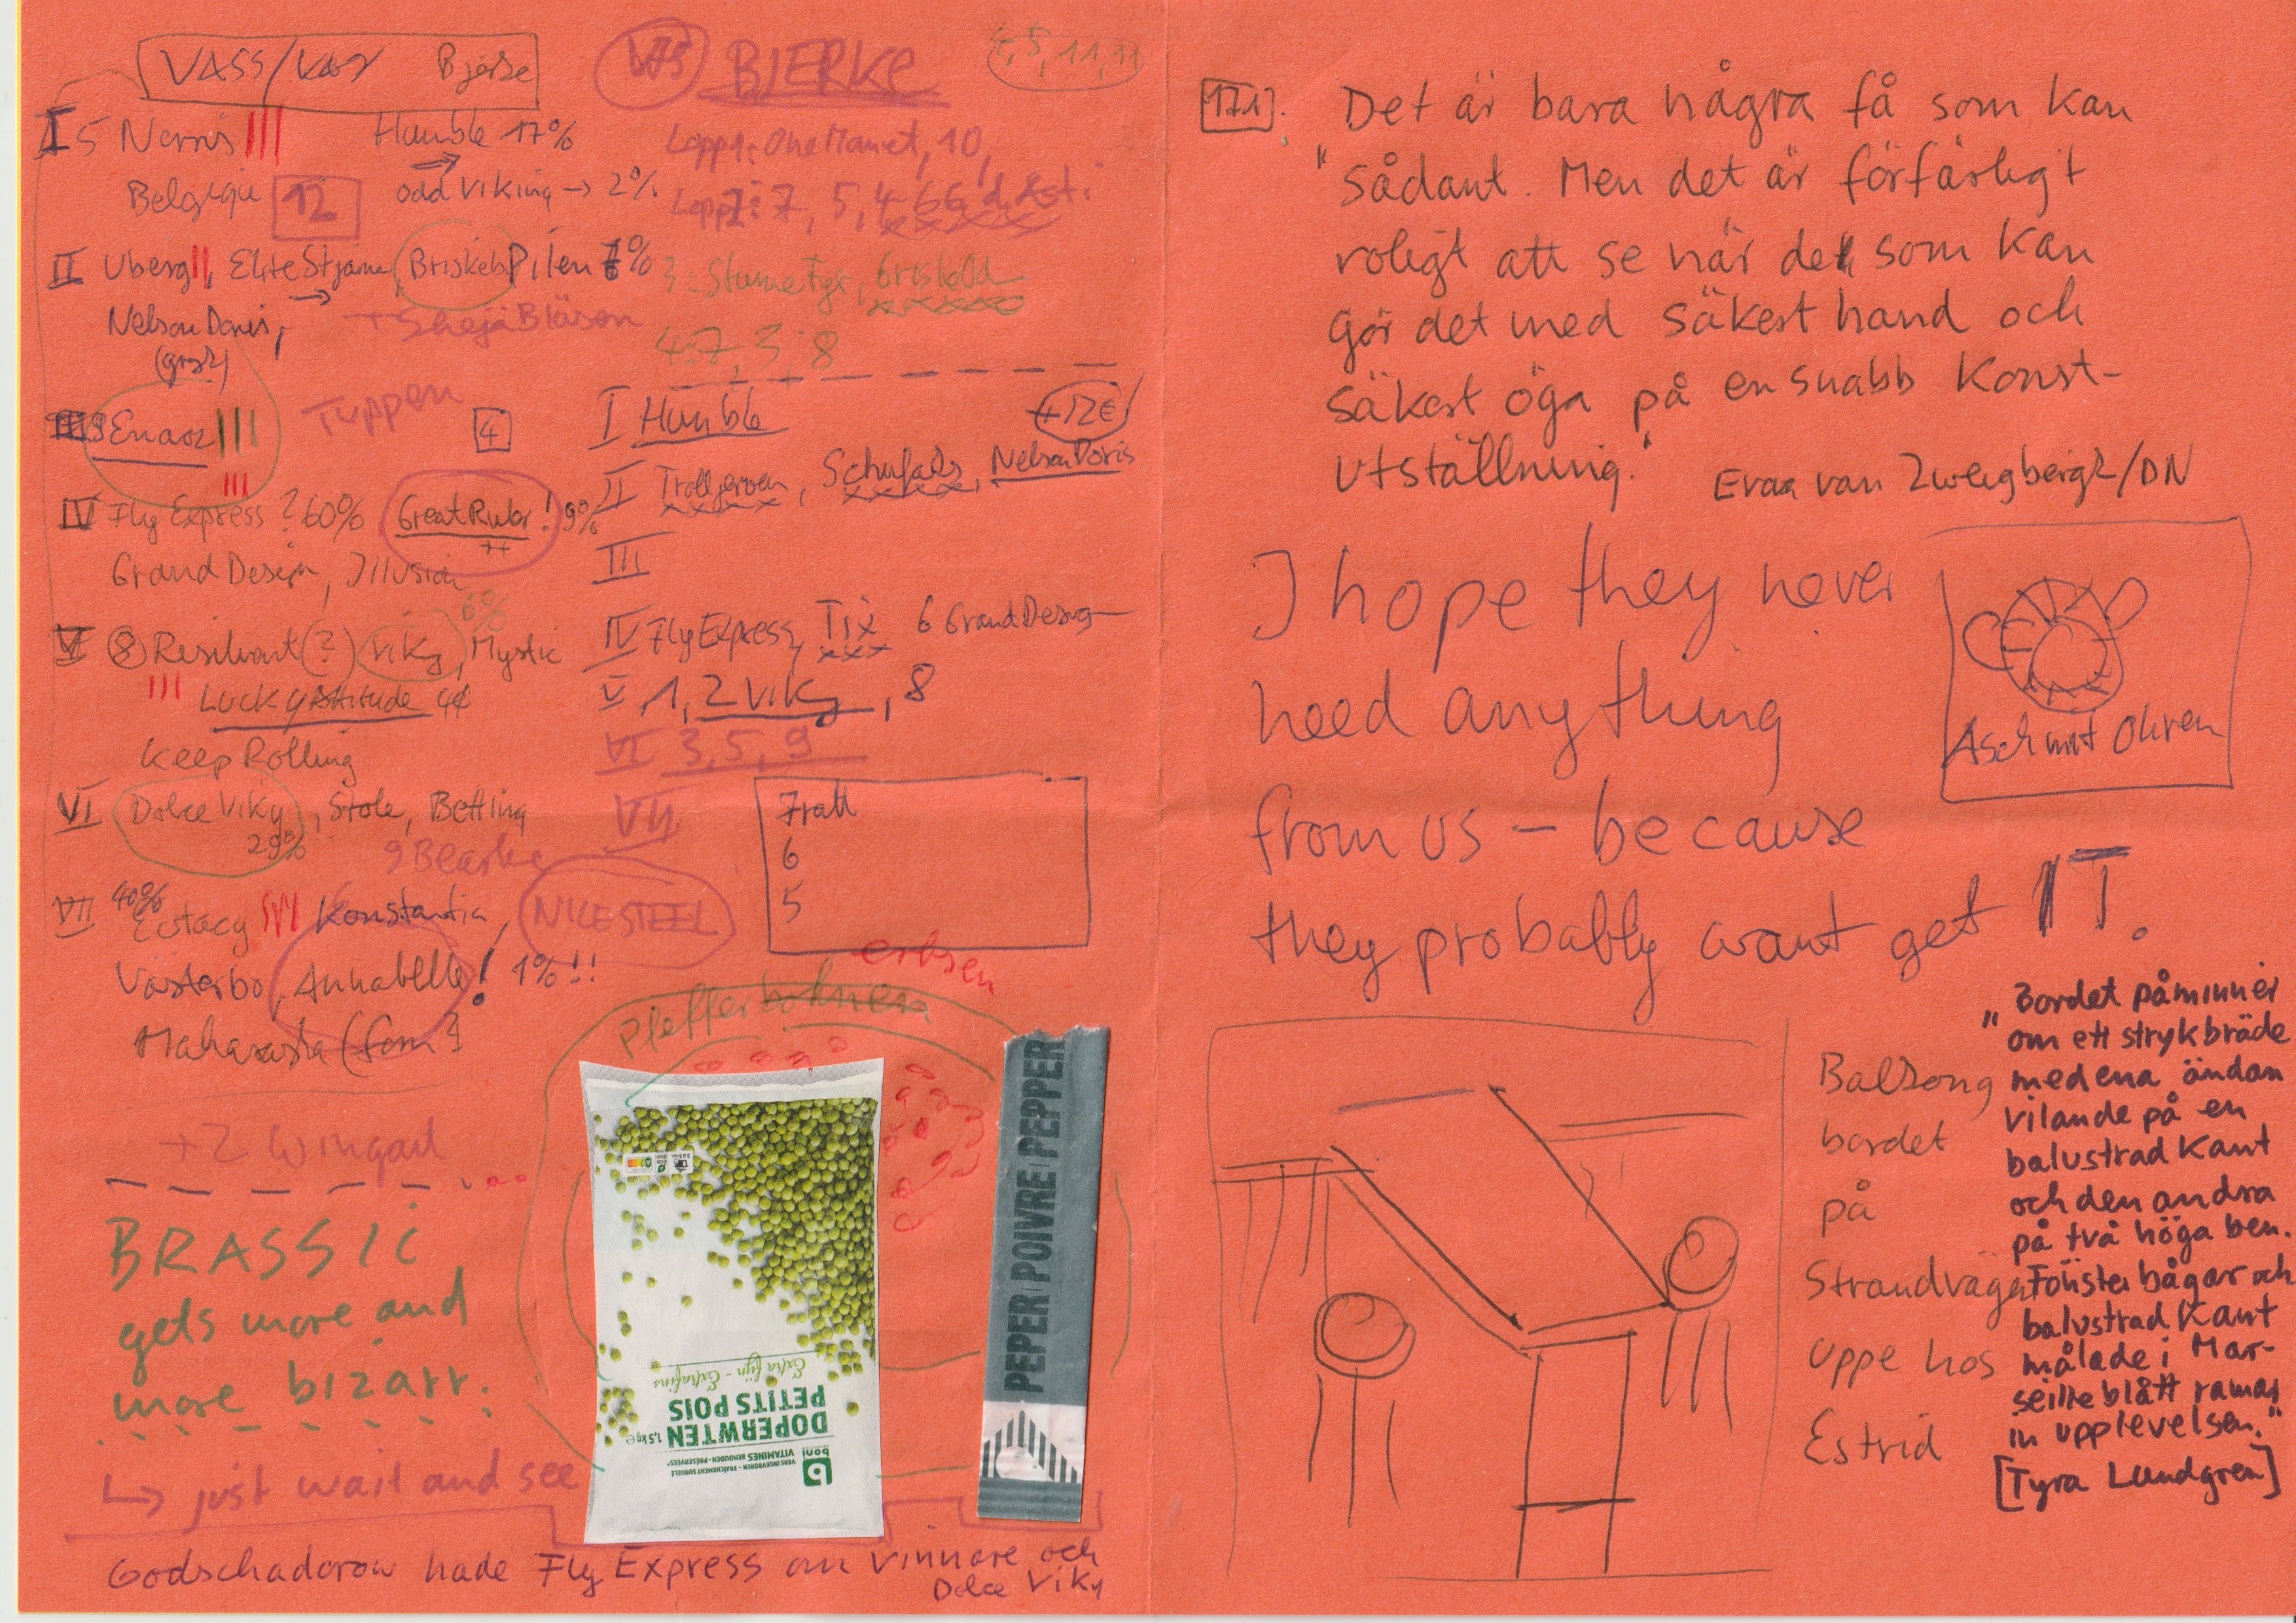 VASS/ Bjerke
I 5 Norris Humble 17%
Belgique 12 odd viking → 2%
II Uberg, Elite Stjärna, Briskeby Pilen %
Nelson Doris,
+ Skeja Blåson
III Enaoz
Tuppen 4
IV Fly Express ? 60% Great Ruby! 9%
++
Grand Design, Illusion
6%
V 8 Resilient (?) Viky, Mystic
Lucky Attitude 4
Keep Rolling
VI Dolce Viky, Stole, Betting
29%
9 Bearke
40%
VII Ecstacy Konstantin, NICE STEEL
Västerbo, Annabelle! 1%!!
Maharasha (form?
+2 Wingait
BRASSIC
gets more and
more bizarr.
↳ just wait and see
V75 BJERKE 4, 5, 11, 11
Lopp1: One Mamet, 10,
Lopp2: 7, 5, 4
3: Stume Fyr, Griskold
4:7, 3, 8
I Humble +12€
II Trolljerven, Schufals, Nelson Doris
III
IV Fly Express, Tix 6 Grand Design
V 1, 2 Viky, 8
VI 3, 5, 9
VII
Fratt
6
5
erbsen
Pfefferbohnen
PEPER | POIVRE | PEPPER
boni
VERS INGEVROREN - FRAÎCHEMENT SURGELÉ
VITAMINES BEHOUDEN - PRÉSERVÉES
DOPERWTEN 1,5 kg e
PETITS POIS
Extra fijn - Extrafins
Godschadorow hade Fly Express om vinnare och
Dolce Viky
17.1. Det är bara några få som kan
"sådant. Men det är förfärligt
roligt att se när de som kan
gör det med säkest hand och
säkest öga på en snabb konst-
utställning." Evaa van Zweigbergk/DN
I hope they never
need anything
from us – because
they probably want get IT.
Asch mit Ohren
Balkong
bordet
på
Strandvägen
uppe hos
Estrid
"Bordet påminner
om ett strykbräde
med ena ändan
vilande på en
balustradkant
och den andra
på två höga ben.
Fönsterbågar och
balustradkant
målade i Mar-
seilleblått ramar
in upplevelsen."
[Tyra Lundgren]